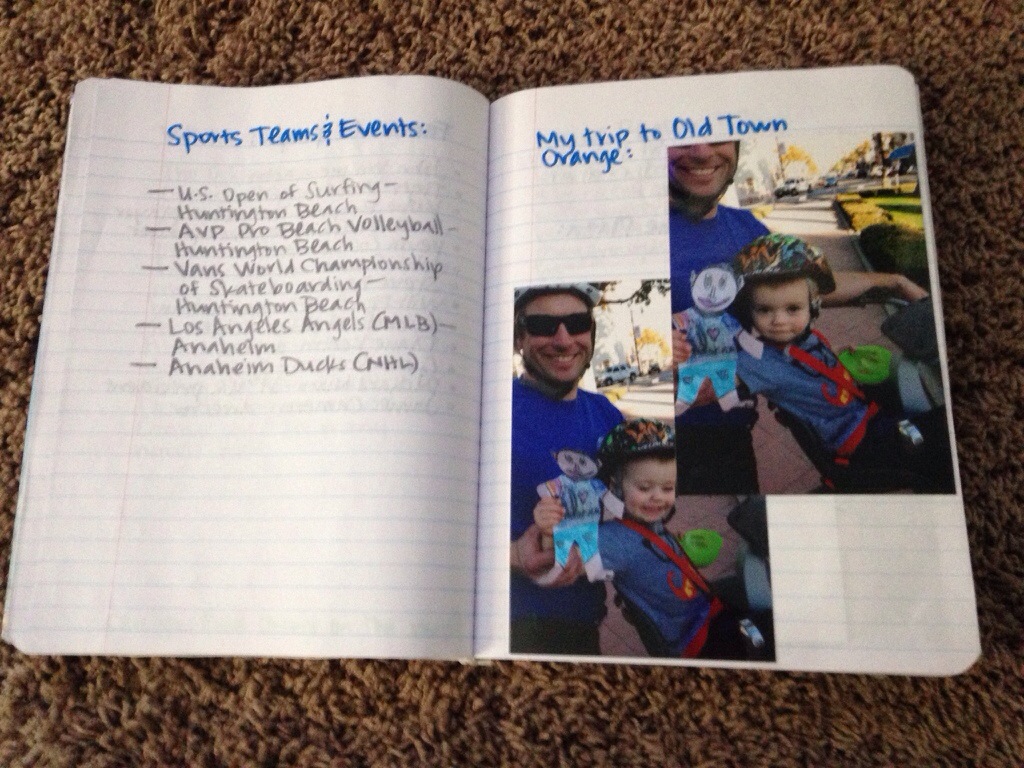 Sports Teams & Events:
— U.S. Open of Surfing —
Huntington Beach
— AVP Pro Beach Volleyball —
Huntington Beach
— Vans World Championship
of Skateboarding —
Huntington Beach
— Los Angeles Angels (MLB) —
Anaheim
— Anaheim Ducks (NHL)
My trip to Old Town
Orange: